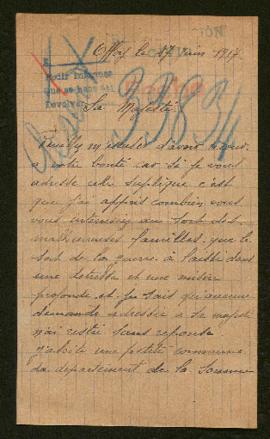 Offoy le 17 Juin 1917
Pedir Informes
33834
Sa Majesté
d'avoir
a votre bonté car si je vous
adresse cette suplique c'est
que j'ai appris combien vous
vous interessez au sort des
malheureuses familles que le
sort de la guerre a laissé dans
une detresse et une misère
profonde et je sait qu'aucune
demande adressée à sa majesté
n'ai restée sans reponse
j'abite une petite commune
du departement de la Somme